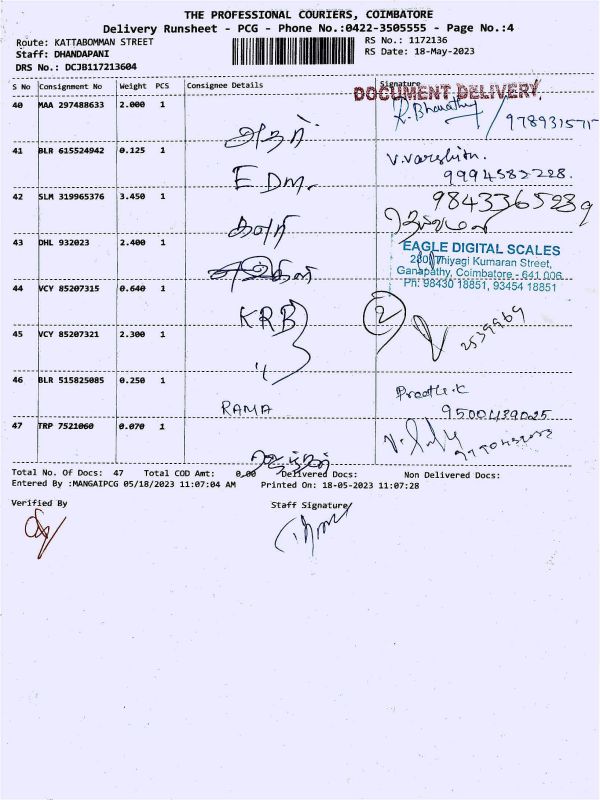 THE PROFESSIONAL COURIERS, COIMBATORE
Delivery Runsheet - PCG - Phone No.:0422-3505555 - Page No.:4
Route: KATTABOMMAN STREET
Staff: DHANDAPANI
DRS No.: DCJB117213604
RS No.: 1172136
RS Date: 18-May-2023
S No Consignment No Weight PCS Consignee Details Signature
DOCUMENT DELIVERY.
40 MAA 297488633 2.000 1 R. Bharathy
41 BLR 615524942 0.125 1 EDM. V. Varshini.
42 SLM 319965376 3.450 1 9843365239
43 DHL 932023 2.400 1
EAGLE DIGITAL SCALES
280, Thiyagi Kumaran Street,
Ganapathy, Coimbatore - 641 006
Ph: 98430 18851, 93454 18851
44 VCY 85207315 0.640 1 KRB 2
2539969
45 VCY 85207321 2.300 1 "
46 BLR 515825085 0.250 1 RAMA
47 TRP 7521060 0.070 1
Total No. Of Docs: 47 Total COD Amt: 0.00 Delivered Docs: Non Delivered Docs:
Entered By :MANGAIPCG 05/18/2023 11:07:04 AM Printed On: 18-05-2023 11:07:28
Verified By Staff Signature